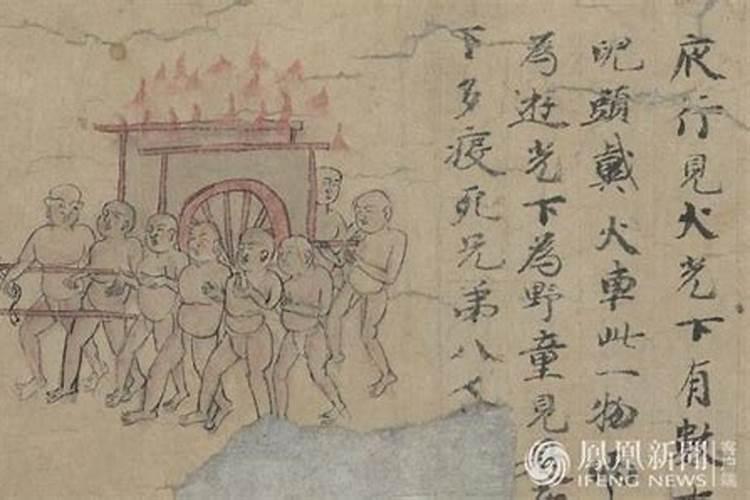 夜行見火光下有數
兒頭戴火車此一物
為遊光下為野童見
下多疫死兄弟八
鳳凰新聞 客户端
IFENG NEWS